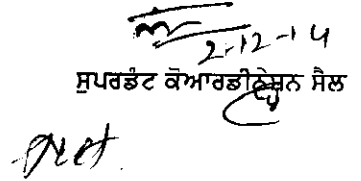 2-12-14
ਸੁਪਰਡੰਟ ਕੋਆਰਡੀਨੇਸ਼ਨ ਸੈਲ